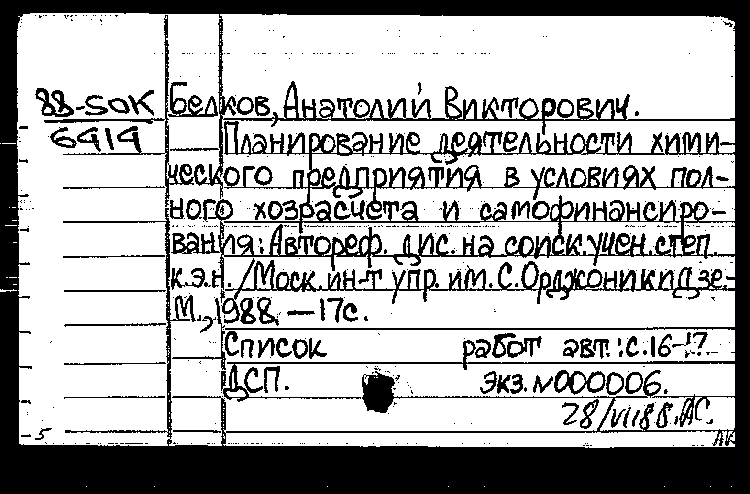 88-SOK Белков, Анатолий Викторович.
6414 Планирование деятельности хими-
ческого предприятия в условиях пол-
ного хозрасчета и самофинансиро-
вания: Автореф. дис. на соиск. учен. степ.
к.э.н. /Моск. ин-т упр. им. С. Орджоникидзе.-
М., 1988. — 17с.
Список работ авт.: с. 16-17
ДСП. Экз. №000006.
28/VII88. АС.
-5 АК